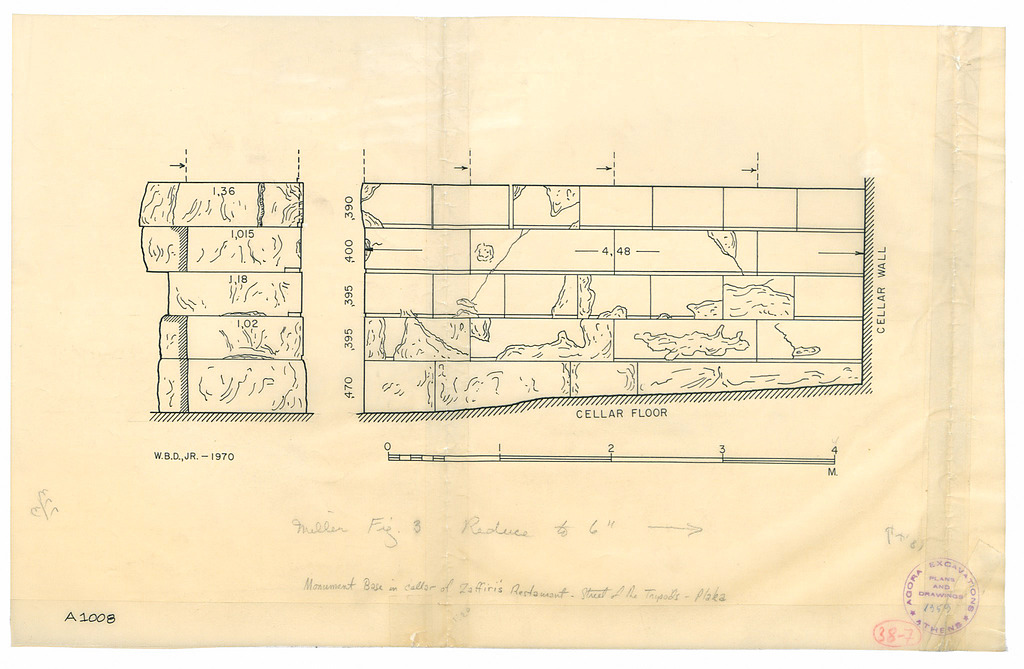 1,36
1,015
1,18
1,02
,390
,400
,395
,395
,470
4,48
CELLAR WALL
CELLAR FLOOR
W.B.D., JR. – 1970
0 1 2 3 4
M.
Miller Fig. 3 Reduce to 6" →
Monument Base in cellar of Zaffiri's Restaurant - Street of the Tripods - Plaka
A1008
AGORA EXCAVATIONS
PLANS
AND
DRAWINGS
ATHENS
38-7